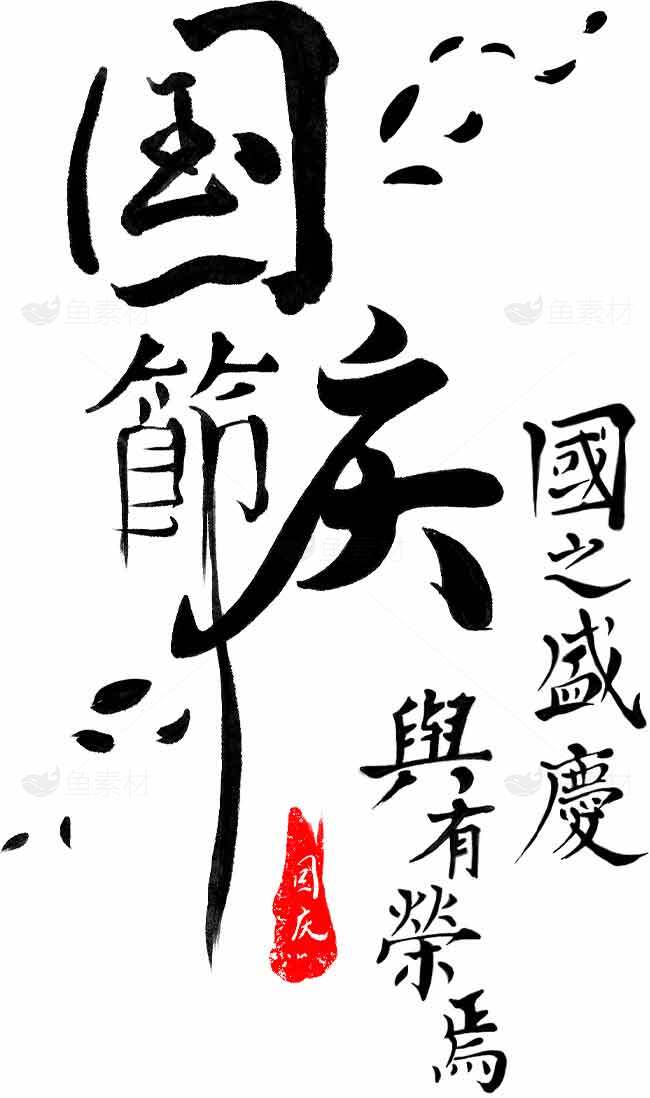 国庆節
國之盛慶
與有榮焉
国庆
鱼素材
鱼素材
鱼素材
鱼素材
鱼素材